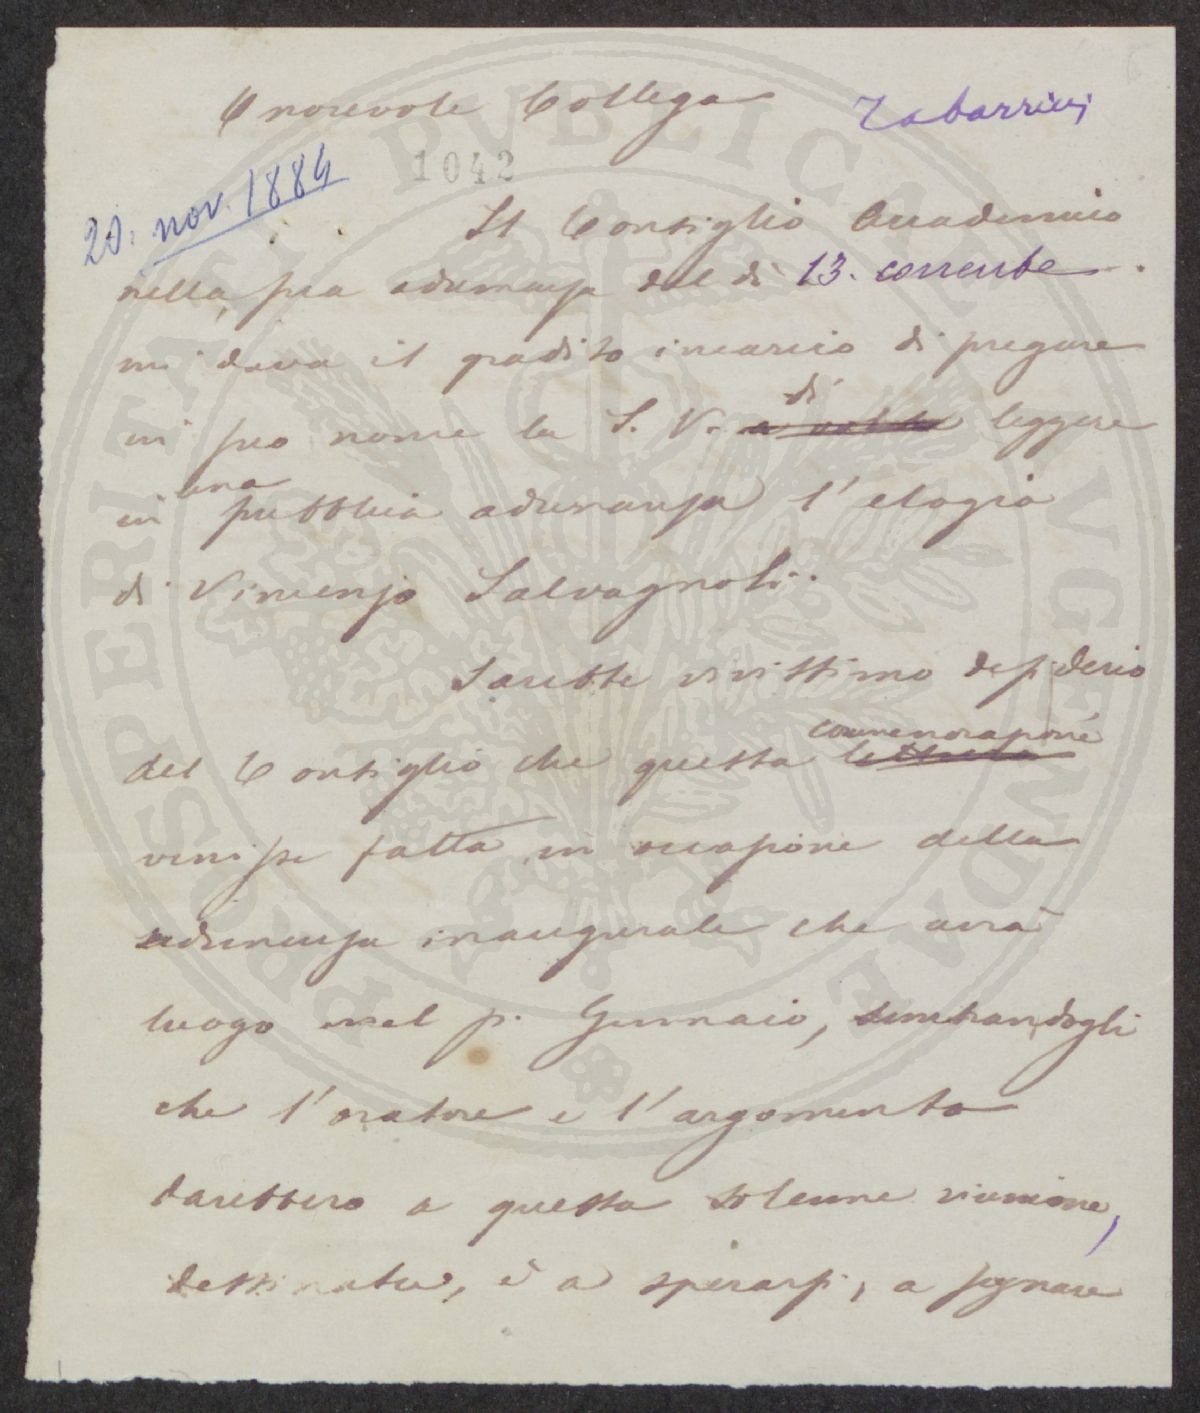 Onorevole Collega
Tabarrini
1042
20. nov. 1884
Il Consiglio Accademico
nella sua adunanza del dì 13. corrente
mi dava il gradito incarico di pregare
in suo nome la S. V. di leggere
in una pubblica adunanza l'elogio
di Vincenzo Salvagnoli.
Sarebbe vivissimo desiderio
del Consiglio che questa lettura commemorazione
venisse fatta in occasione della
adunanza inaugurale che avrà
luogo nel p. Gennaio, sembrandogli
che l'oratore e l'argomento
darebbero a questa solenne riunione,
destinata, è a sperarsi, a segnare
PROSPERITATI PVBLICAE AVGENDAE